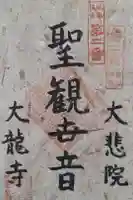 大悲院
聖観世音
大龍寺